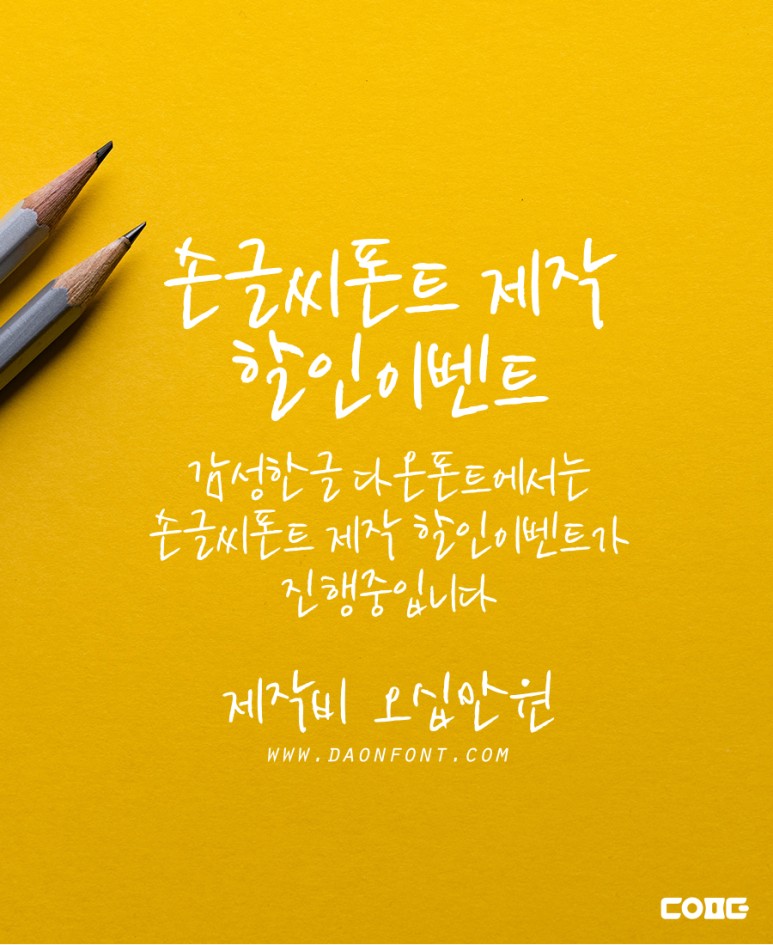 손글씨폰트 제작
할인이벤트
감성한글 다온폰트에서는
손글씨폰트 제작 할인이벤트가
진행중입니다
제작비 오십만원
WWW.DAONFONT.COM